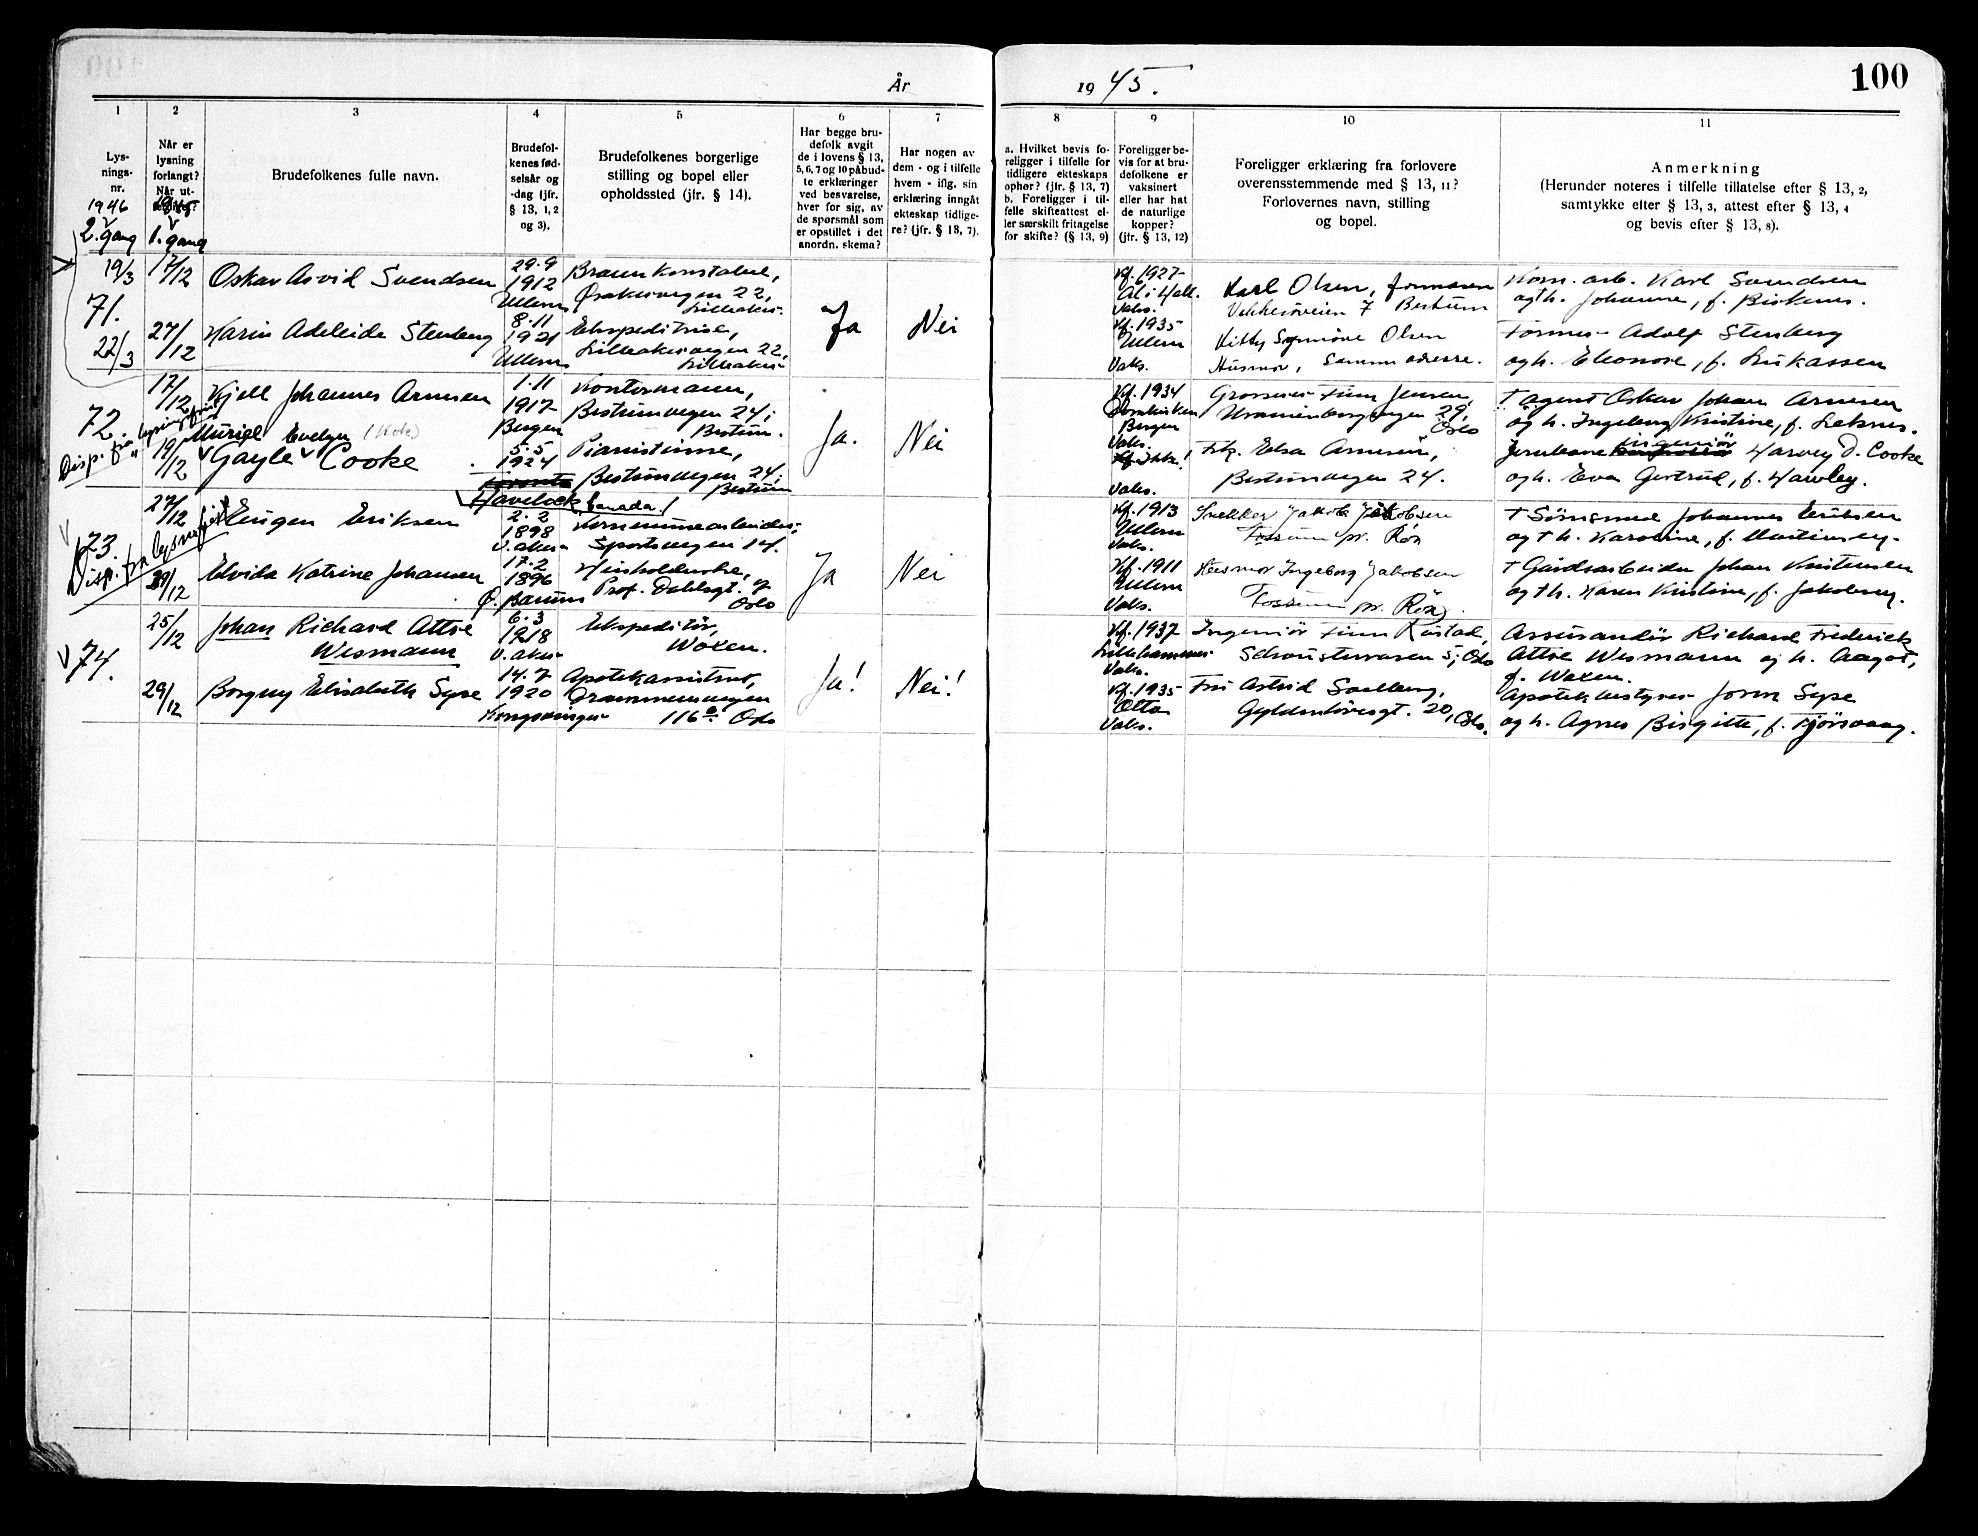 År
19 45.
100
1
2
3
4
5
6
7
8
9
10
11
Lys-
nings-
nr.
Når er
lysning
forlangt?
Når ut-
Brudefolkenes fulle navn.
Brudefol-
kenes fød-
selsår og
-dag (jfr.
§ 13, 1, 2
og 3).
Brudefolkenes borgerlige
stilling og bopel eller
opholdssted (jfr. § 14).
Har begge bru-
defolk avgit
de i lovens § 13,
5, 6, 7 og 10 påbud-
te erklæringer
ved besvarelse,
hver for sig, av
de spørsmål som
er opstillet i det
anordn. skema?
Har nogen av
dem - og i tilfelle
hvem - iflg. sin
erklæring inngått
ekteskap tidlige-
re? (jfr. § 13, 7).
a. Hvilket bevis fo-
religger i tilfelle for
tidligere ekteskaps
ophør? (jfr. § 13, 7)
b. Foreligger i til-
felle skifteattest el-
ler særskilt fritagelse
for skifte? (§ 13, 9)
Foreligger be-
vis for at bru-
defolkene er
vaksinert
eller har hat
de naturlige
kopper?
(jfr. § 13, 12)
Foreligger erklæring fra forlovere
overensstemmende med § 13, 11?
Forlovernes navn, stilling
og bopel.
Anmerkning
(Herunder noteres i tilfelle tillatelse efter § 13, 2,
samtykke efter § 13, 3, attest efter § 13, 4
og bevis efter § 13, 8).
1946
2. gang
1945
1. gang
19/3
71.
22/3
17/12
Oskar Asvid Svendsen
29.9
1912
Ullern
Brannkonstabel,
Ørakervegen 22,
Lilleaker
27/12
Karin Adeleide Stenberg
8.11
1921
Ullern
Ekspeditrise,
Lilleakervegen 22,
Lilleaker
Ja
Nei
Kf. 1927
Ål i Hall.
Vaks.
Karl Olsen, formann
Vekkerøveien 7 Bestum
Kom. arb. Karl Svendsen
og h. Johanne, f.
Kf. 1935
Ullern
Vaks.
Kitty Synnøve Olsen
Husmor, Samme adresse.
Former Adolf Stenberg
og h. Eleonore, f. Lukassen
72.
Disp. fra lysningsfrist
17/12
Kjell Johannes Arnesen
1.11
1917
Bergen
Kontormann,
Bestumvegen 24,
Bestum.
19/12
Muriel Evelyn (Kok)
Gayle Cooke
5.5
1924
Havelock, Canada!
Pianistinne,
Bestumvegen 24,
Bestum
Ja.
Nei
Kf. 1934
Domkirken
Bergen
Vaks.
Grosserer Finn Jensen,
Uranienborgvegen 29,
Oslo
† agent Oskar Johan Arnesen
og h. Ingeborg Kristine, f. Leknes.
Kf. Ikke!
Vaks.
Frk. Elsa Arnesen,
Bestumvegen 24.
Jernbane ingeniør Harvey D. Cooke
og h. Eva Gertrud, f. Hawley.
73.
Disp. fra lysn.frist
27/12
Eugen Eriksen
2.2
1898
V. Aker
Kommunearbeider,
Sportsvegen 14.
29/12
Elvida Katrine Johansen
17.2
1896
Ø. Bærum
Husholderske,
Prof. Dahlsgt. 9
Oslo
Ja
Nei
Kf. 1913
Ullern
Vaks.
Snekker Jakob Jakobsen
Fossum pr. Røa
† Sømsmed Johannes Eriksen
og † h. Karoline, f. Martinsen.
Kf. 1911
Ullern
Vaks.
Husmor Ingeborg Jakobsen
Fossum pr. Røa.
† Gårdsarbeider Johan Kristensen
og † h. Karen Kristine, f. Jakobsen.
74.
25/12
Johan Richard Attve
Wismann
6.3
1918
V. Aker
Ekspeditør,
Woxen.
29/12
Borgny Elisabeth Syse
14.7
1920
Kongsvinger
Apotekassistent,
Drammensvegen
116 Oslo
Ja!
Nei!
Kf. 1937
Lillehammer
Vaks.
Ingeniør Finn Rustad,
Schousterrassen 5, Oslo
Assurandør Richard Frederick
Attve Wismann og h. Aagot,
f. Woxen.
Kf. 1935
Otta
Vaks.
Fru Astrid Saelberg,
Gyldenløvesgt. 20, Oslo.
Apotekbestyrer Jorm Syse
og h. Agnes Birgitte, f. Fjørsvaag.